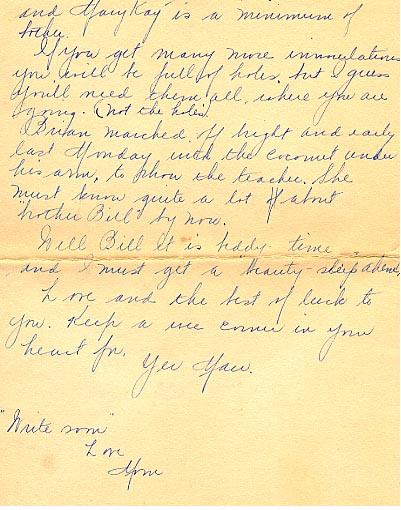 and Mary Kay is a minimum of
today.
If you get many more innoculations
you will be full of holes, but I guess
you'll need them all, where you are
going. (not the holes)
Brian marched off bright and early
last Monday with the coconut under
his arm, to show the teacher. She
must know quite a lot about
"brother Bill" by now.
Well Bill it is beddy time
and I must get a "beauty" sleep
Love and the best of luck to
you. Keep a wee corner in your
heart for.
Yer Maw.
"Write soon"
Love
Mom